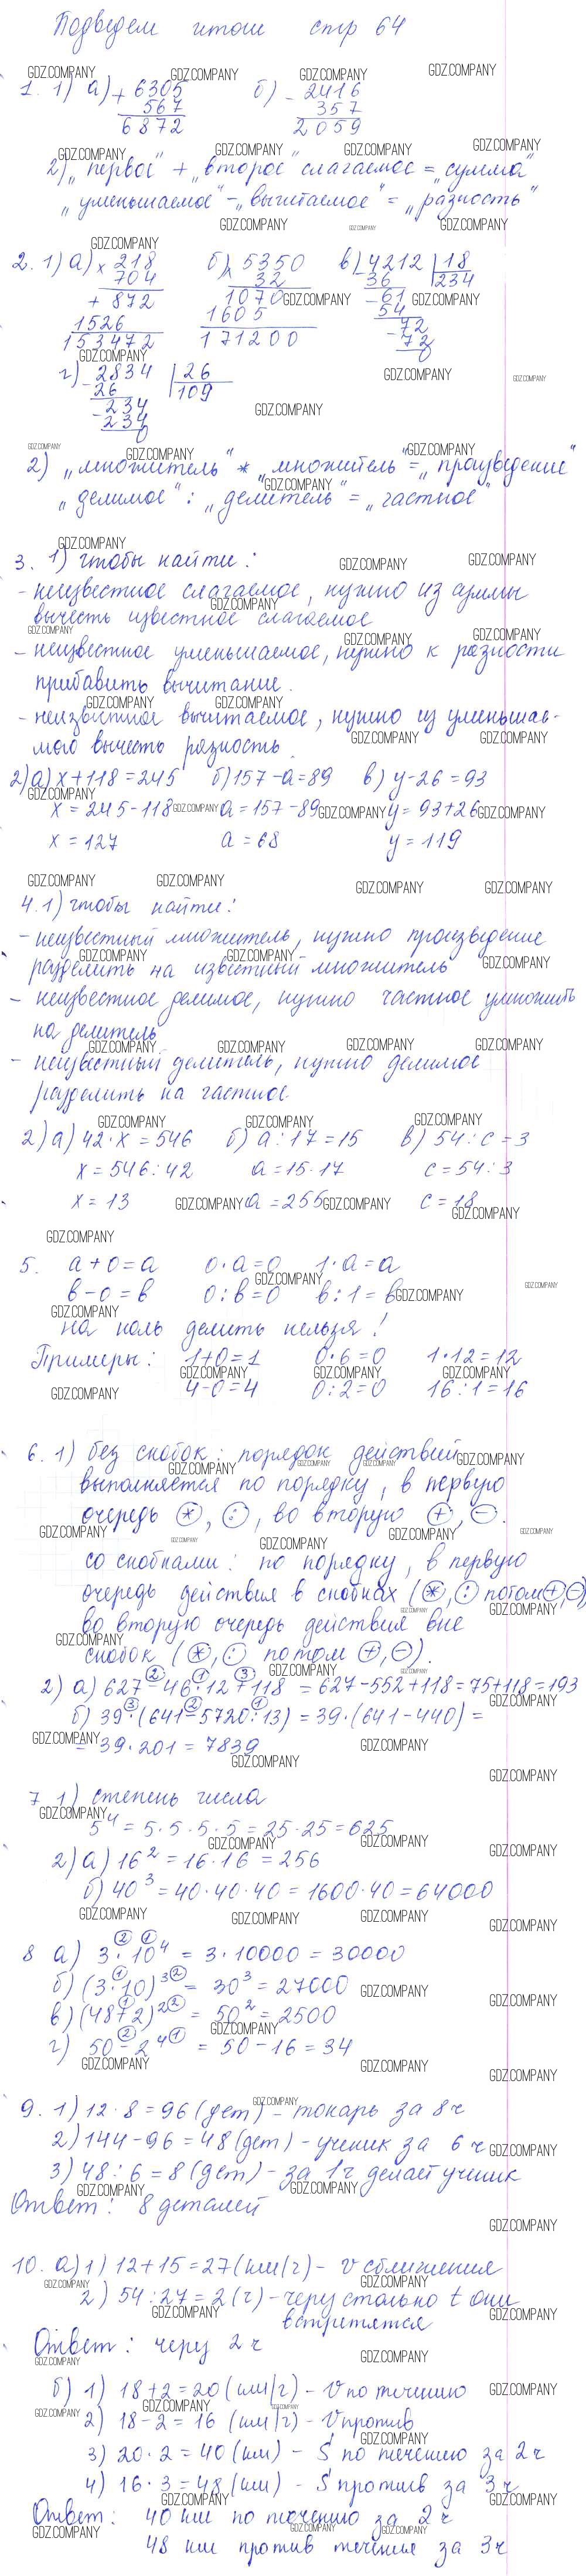 Подведем итоги стр 64
GDZ.COMPANY
1. 1) а) + 6305 б) - 2416
567 357
6872 2059
2) „первое" + „второе" слагаемое = „сумма"
„уменьшаемое" - „вычитаемое" = „разность"
2. 1) а) × 218 б) × 5350 в) 4212 | 18
704 32 36 234
+ 872 1070 - 61
1526 1605 54
153472 171200 - 72
72
0
г) 2834 | 26
- 26 109
- 234
234
0
2) „множитель" * „множитель" = „произведение"
„делимое" : „делитель" = „частное"
3. 1) чтобы найти:
- неизвестное слагаемое, нужно из суммы
вычесть известное слагаемое
- неизвестное уменьшаемое, нужно к разности
прибавить вычитание.
- неизвестное вычитаемое, нужно из уменьшае-
мого вычесть разность.
2) а) x + 118 = 245 б) 157 - a = 89 в) y - 26 = 93
x = 245 - 118 a = 157 - 89 y = 93 + 26
x = 127 a = 68 y = 119
4. 1) чтобы найти:
- неизвестный множитель, нужно произведение
разделить на известный множитель
- неизвестное делимое, нужно частное умножить
на делитель
- неизвестный делитель, нужно делимое
разделить на частное
2) а) 42 · x = 546 б) a : 17 = 15 в) 54 : c = 3
x = 546 : 42 a = 15 · 17 c = 54 : 3
x = 13 a = 255 c = 18
5. a + 0 = a 0 · a = 0 1 · a = a
в - 0 = в 0 : в = 0 в : 1 = в
на ноль делить нельзя!
Примеры: 1 + 0 = 1 0 · 6 = 0 1 · 12 = 12
4 - 0 = 4 0 : 2 = 0 16 : 1 = 16
6. 1) без скобок: порядок действий
выполняется по порядку, в первую
очередь *, :, во вторую +, -.
со скобками: по порядку, в первую
очередь действия в скобках (*, : потом +, -)
во вторую очередь действия вне
скобок (*, : потом +, -).
2) а) 627 - 46 · 12 + 118 = 627 - 552 + 118 = 75 + 118 = 193
б) 39 · (641 - 5720 : 13) = 39 · (641 - 440) =
= 39 · 201 = 7839
7 1) степень числа
5⁴ = 5 · 5 · 5 · 5 = 25 · 25 = 625
2) а) 16² = 16 · 16 = 256
б) 40³ = 40 · 40 · 40 = 1600 · 40 = 64000
8 а) 3 · 10⁴ = 3 · 10000 = 30000
б) (3 · 10)³ = 30³ = 27000
в) (48 + 2)² = 50² = 2500
г) 50 - 2⁴ = 50 - 16 = 34
9. 1) 12 · 8 = 96 (дет) - токарь за 8 ч
2) 144 - 96 = 48 (дет) - ученик за 6 ч
3) 48 : 6 = 8 (дет) - за 1 ч делает ученик
Ответ: 8 деталей
10. а) 1) 12 + 15 = 27 (км/ч) - v сближения
2) 54 : 27 = 2 (ч) - через столько t они
встретятся
Ответ: через 2 ч
б) 1) 18 + 2 = 20 (км/ч) - v по течению
2) 18 - 2 = 16 (км/ч) - v против
3) 20 · 2 = 40 (км) - S по течению за 2 ч
4) 16 · 3 = 48 (км) - S против за 3 ч
Ответ: 40 км по течению за 2 ч
48 км против течения за 3 ч